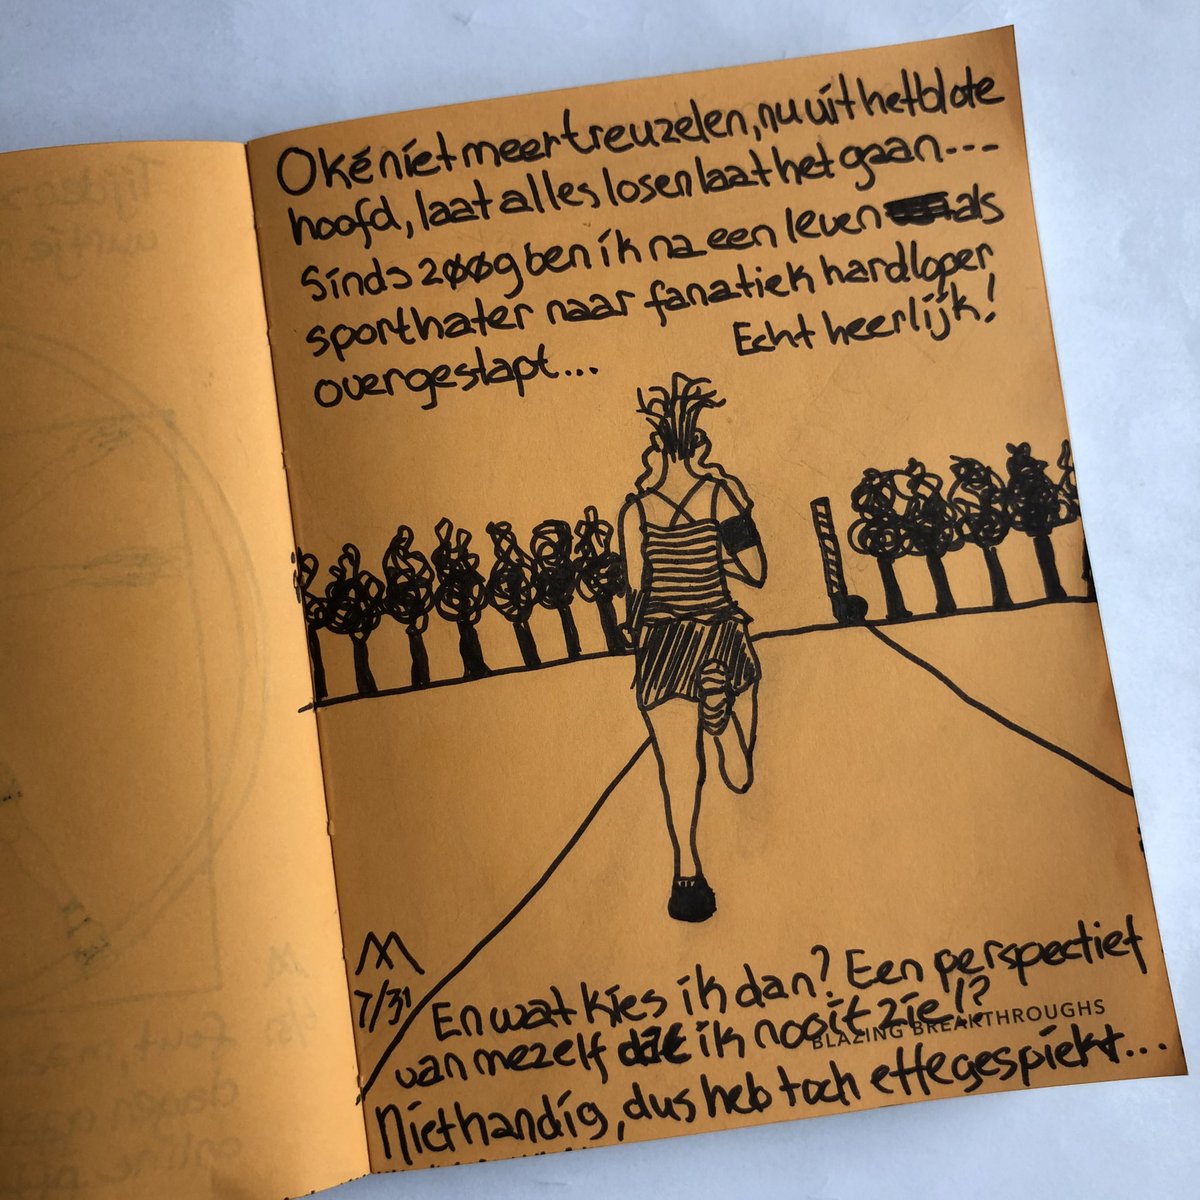 Oké niet meer treuzelen, nu uit het blote
hoofd, laat alles los en laat het gaan---
Sinds 2009 ben ik na een leven als
sporthater naar fanatiek hardloper
overgestapt... Echt heerlijk!
M
7/31
En wat kies ik dan? Een perspectief
van mezelf dat ik nooit zie!?
BLAZING BREAKTHROUGHS
Niet handig, dus heb toch effe gespiekt...